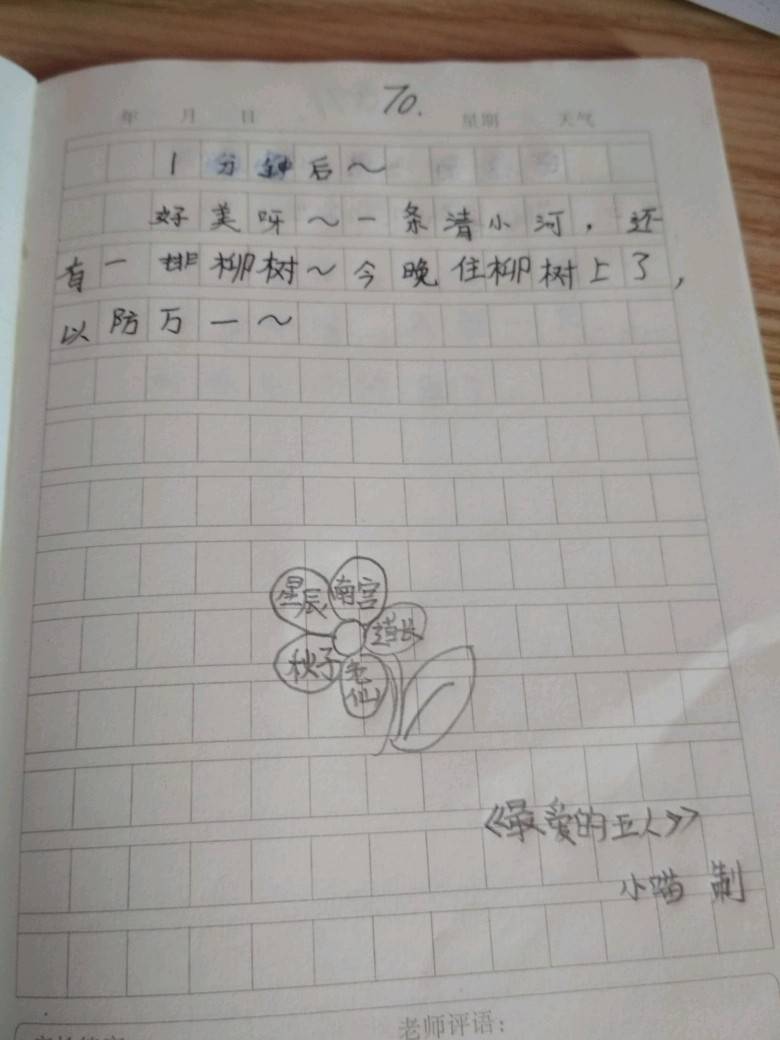 70.
年 月 日 星期 天气
1分钟后～
好美呀～一条清小河，还
有一排柳树～今晚住柳树上了，
以防万一～
星辰
南宫
道长
秋子
老仙
《最爱的五人》
小喵 制
老师评语：